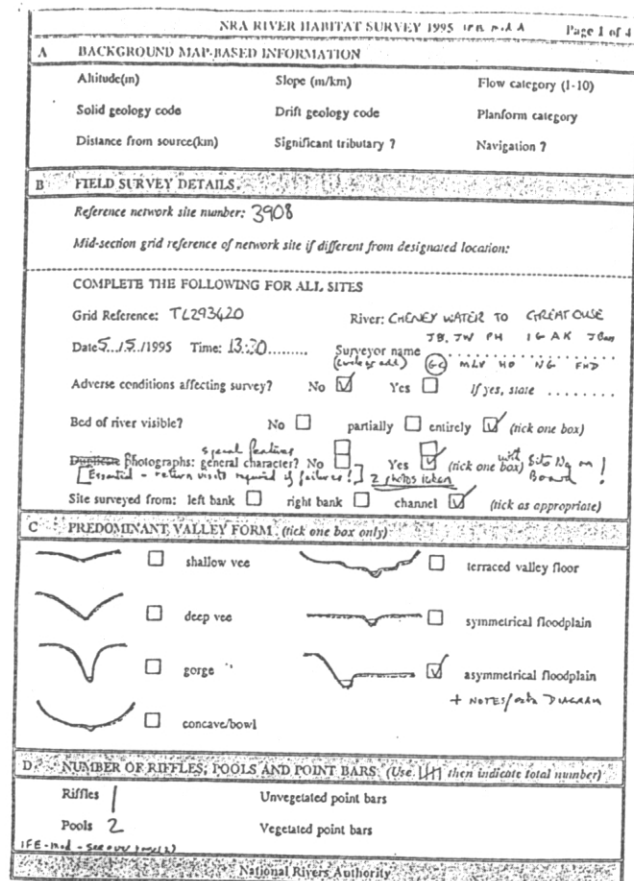 NRA RIVER HABITAT SURVEY 1995 IFE Mod A Page 1 of 4
A BACKGROUND MAP-BASED INFORMATION
Altitude(m) Slope (m/km) Flow category (1-10)
Solid geology code Drift geology code Planform category
Distance from source(km) Significant tributary ? Navigation ?
B FIELD SURVEY DETAILS
Reference network site number: 3908
Mid-section grid reference of network site if different from designated location:
COMPLETE THE FOLLOWING FOR ALL SITES
Grid Reference: TL293420 River: CHENEY WATER TO GREAT OUSE
JB, JW PH IG AK JBm
Date 5./.5./1995 Time: 13:20......... Surveyor name ..........
(circle as add) GC MLV HO NG FHD
Adverse conditions affecting survey? No Yes If yes, state ........
Bed of river visible? No partially entirely (tick one box)
special features
Duplicate photographs: general character? No Yes (tick one box) with Site No on
[Essential - return visits required if failures!] 2 photos taken Board!
Site surveyed from: left bank right bank channel (tick as appropriate)
C PREDOMINANT VALLEY FORM (tick one box only)
shallow vee terraced valley floor
deep vee symmetrical floodplain
gorge asymmetrical floodplain
+ NOTES/ DIAGRAM
concave/bowl
D NUMBER OF RIFFLES, POOLS AND POINT BARS (Use then indicate total number)
Riffles 1 Unvegetated point bars
Pools 2 Vegetated point bars
IFE-mod-
National Rivers Authority